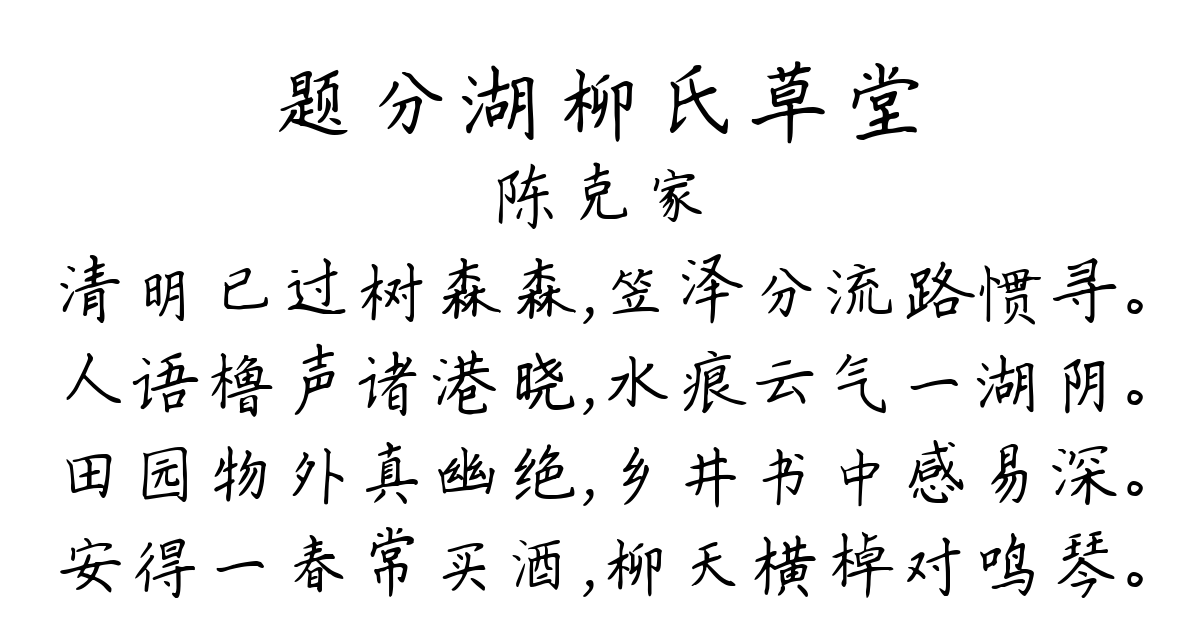 题分湖柳氏草堂
陈克家
清明已过树森森,笠泽分流路惯寻。
人语橹声诸港晓,水痕云气一湖阴。
田园物外真幽绝,乡井书中感易深。
安得一春常买酒,柳天横棹对鸣琴。